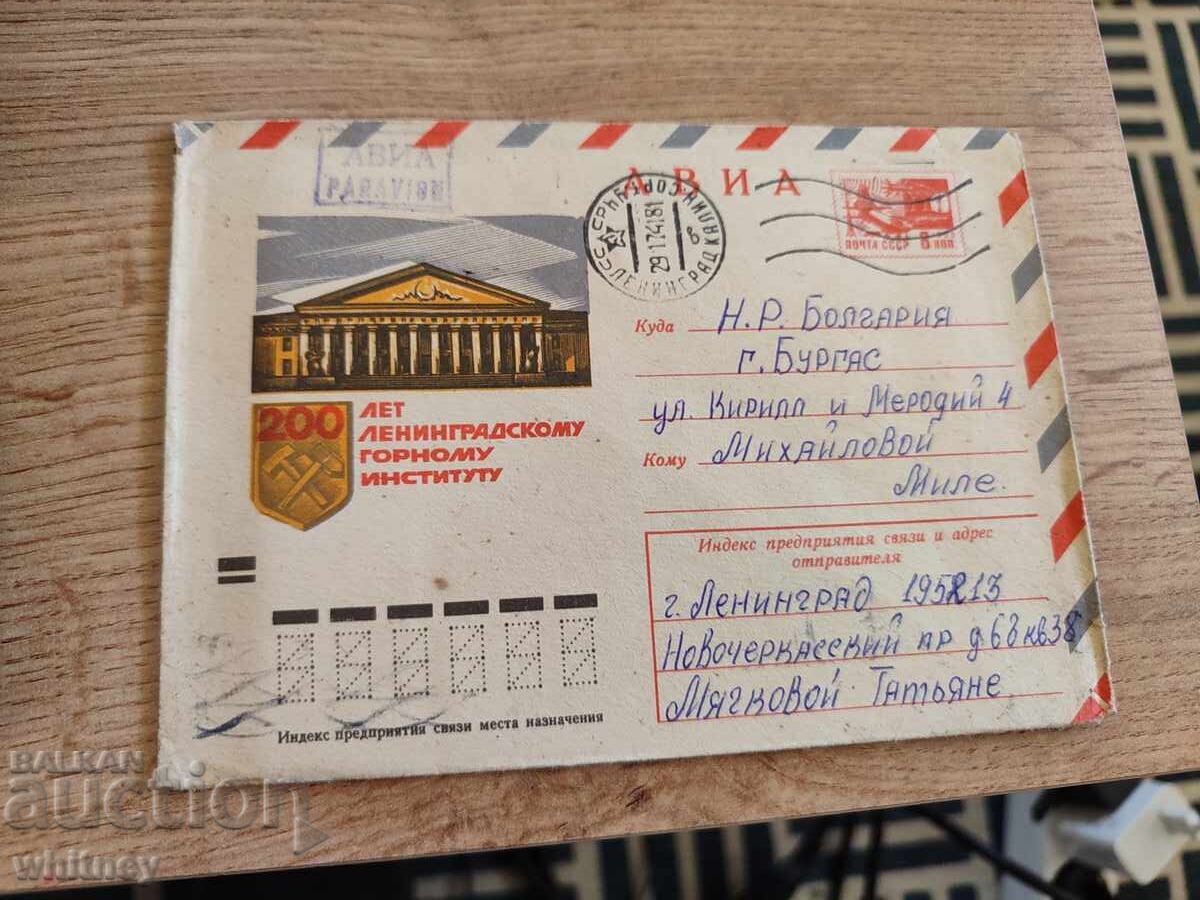 АВИА
PARAVION
АВИА
ПОЧТА СССР 6 КОП
ЛЕНИНГРАД
200 ЛЕТ
ЛЕНИНГРАДСКОМУ
ГОРНОМУ
ИНСТИТУТУ
Куда Н.Р. Болгария
г. Бургас
ул. Кирилл и Меродий 4
Кому Михайловой
Миле.
Индекс предприятия связи и адрес
отправителя
г. Ленинград 195213
Новочеркасский пр д68 кв38
Мячковой Татьяне
Индекс предприятия связи места назначения
BALKAN
auction
whitney